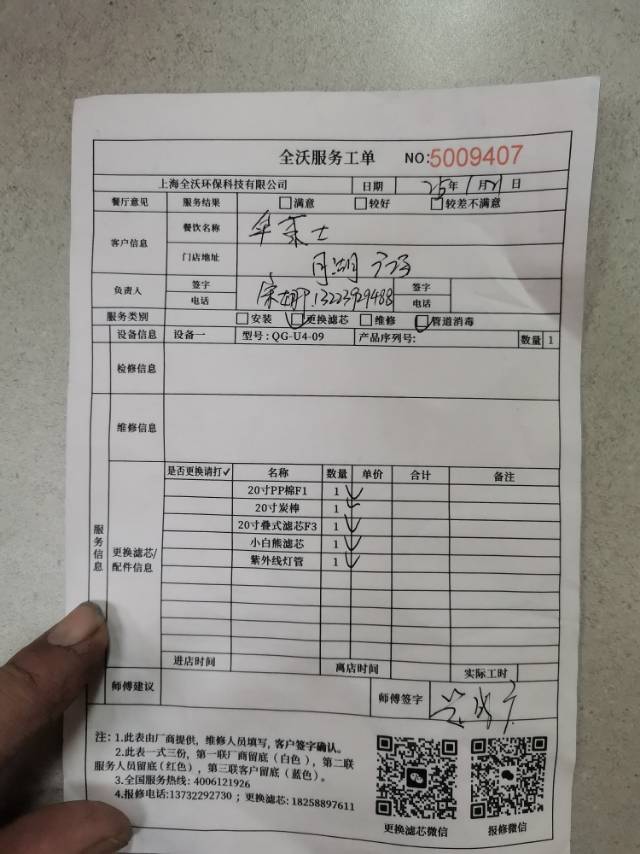 全沃服务工单 NO:5009407
上海全沃环保科技有限公司 日期 25年1月21日
餐厅意见 服务结果 □满意 □较好 □较差不满意
客户信息 餐饮名称 华莱士
门店地址 月湖
负责人 签字 签字
电话 13223929488 电话
服务类别 □安装 □更换滤芯 □维修 □管道消毒
设备信息 设备一 型号:QG-U4-09 产品序列号: 数量 1
检修信息
维修信息
服务信息
更换滤芯/配件信息
是否更换请打✓ 名称 数量 单价 合计 备注
20寸PP棉F1 1 ✓
20寸炭棒 1 ✓
20寸叠式滤芯F3 1 ✓
小白熊滤芯 1 ✓
紫外线灯管 1 ✓
进店时间 离店时间 实际工时
师傅建议 师傅签字
注:1.此表由厂商提供，维修人员填写，客户签字确认。
2.此表一式三份，第一联厂商留底（白色），第二联
服务人员留底(红色)，第三联客户留底（蓝色）。
3.全国服务热线: 4006121926
4.报修电话:13732292730；更换滤芯: 18258897611
更换滤芯微信 报修微信